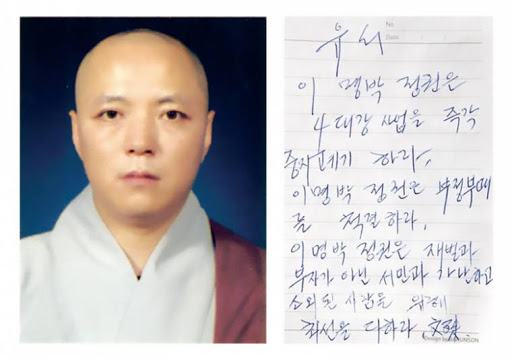 No.
Date
유서
이 명박 정권은
4대강 사업을 즉각
중지·폐기 하라.
이명박 정권은 부정부패
를 척결하라.
이명박 정권은 재벌과
부자가 아닌 서민과 가난하고
소외된 사람을 위해
최선을 다하라 文殊.
Design by